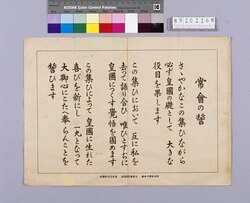 KODAK Color Control Patches
89202268
常會の誓
さゝやかなこの集ひながら
必ず皇國の礎として 大きな
役目を果します
この集ひにおいて 互に私を
去つて語り合ひ 唯ひとすぢに
皇國につくす覺悟を固めます
この集ひによつて 皇國に生れた
喜びを新にし 一丸となつて
大御心にこたへ奉らんことを
誓ひます